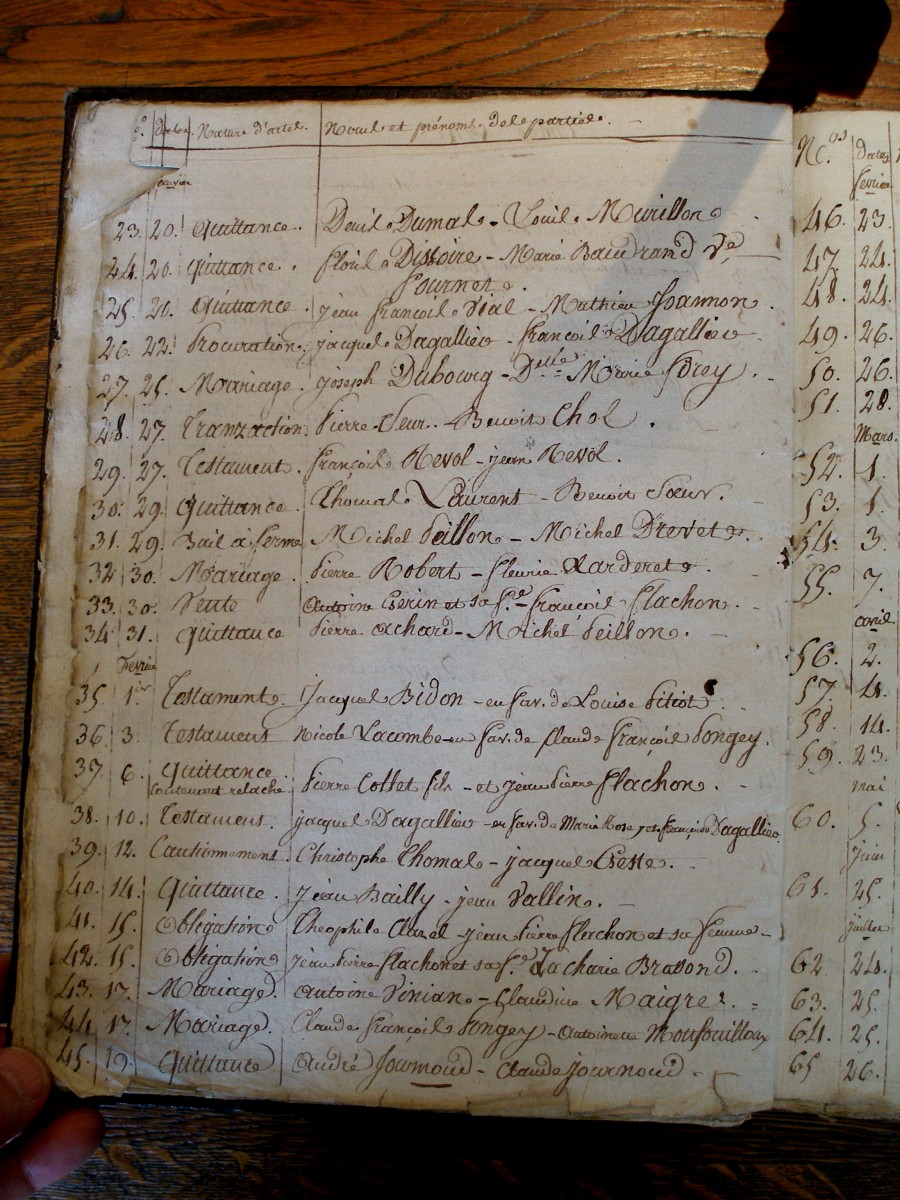 Dates. Nature d'actes. Noms et prénoms des parties.
Janvier
23. 20. Quittance. Denis Dumas - Louis Murillon.
24. 20. Quittance. Marie Baudrand Ve
Journet.
25. 20. Quittance. jean françois Vial - Mathieu Joannon.
26. 22. Procuration. jacques Dagallier - françois Dagallier
27. 25. Mariage. joseph Dubourg - Delle Marie Forey.
28. 27. Tranzaction pierre - Benoit Chol.
29. 27. Testament. françois Revol - jean Revol.
30. 29. Quittance. Thomas Laurent - Benoit
31. 29. Bail à ferme Michel Peillon - Michel Drevet.
32. 30. Mariage. pierre Robert - fleurie Larderet.
33. 30. Vente antoine et sa f.e françois flachon.
34. 31. Quittance pierre achard - Michel Peillon.
Fevrier
35. 1er Testament. Jacques Bidon - en fav. de Louise
36. 3. Testament Nicole Lacombe - en fav. de Claude françois Pongey.
37. 6. Quittance
contenant relache. pierre Collet fils - et jean pierre flachon.
38. 10. Testament. jacques Dagallier - en fav. de Marie Rose et françoise Dagallier
39. 12. Cautionnement. Christophe Thomas - jacques
40. 14. Quittance. jean Bailly - jean Vallin.
41. 15. Obligation Theophile Clazel - jean pierre flachon et sa femme -
42. 15. Obligation jean pierre flachon et sa f.e Zacharie Brassond.
43. 17. Mariage. antoine Vinian - Claudine Maigre.
44. 17. Mariage. Claude françois Pongey - antoinette
45. 19. Quittance André Journoud - Claude journoud.
Nc.os dates
fevrier
46. 23.
47. 24.
48. 24.
49. 26.
50. 26.
51. 28.
Mars.
52. 1.
53. 1.
54. 3.
55. 7.
avril
56. 2.
57. 4.
58. 14.
59. 23.
mai
60. 5.
juin
61. 25.
juillet
62. 24.
63. 25.
64. 25.
65 26.